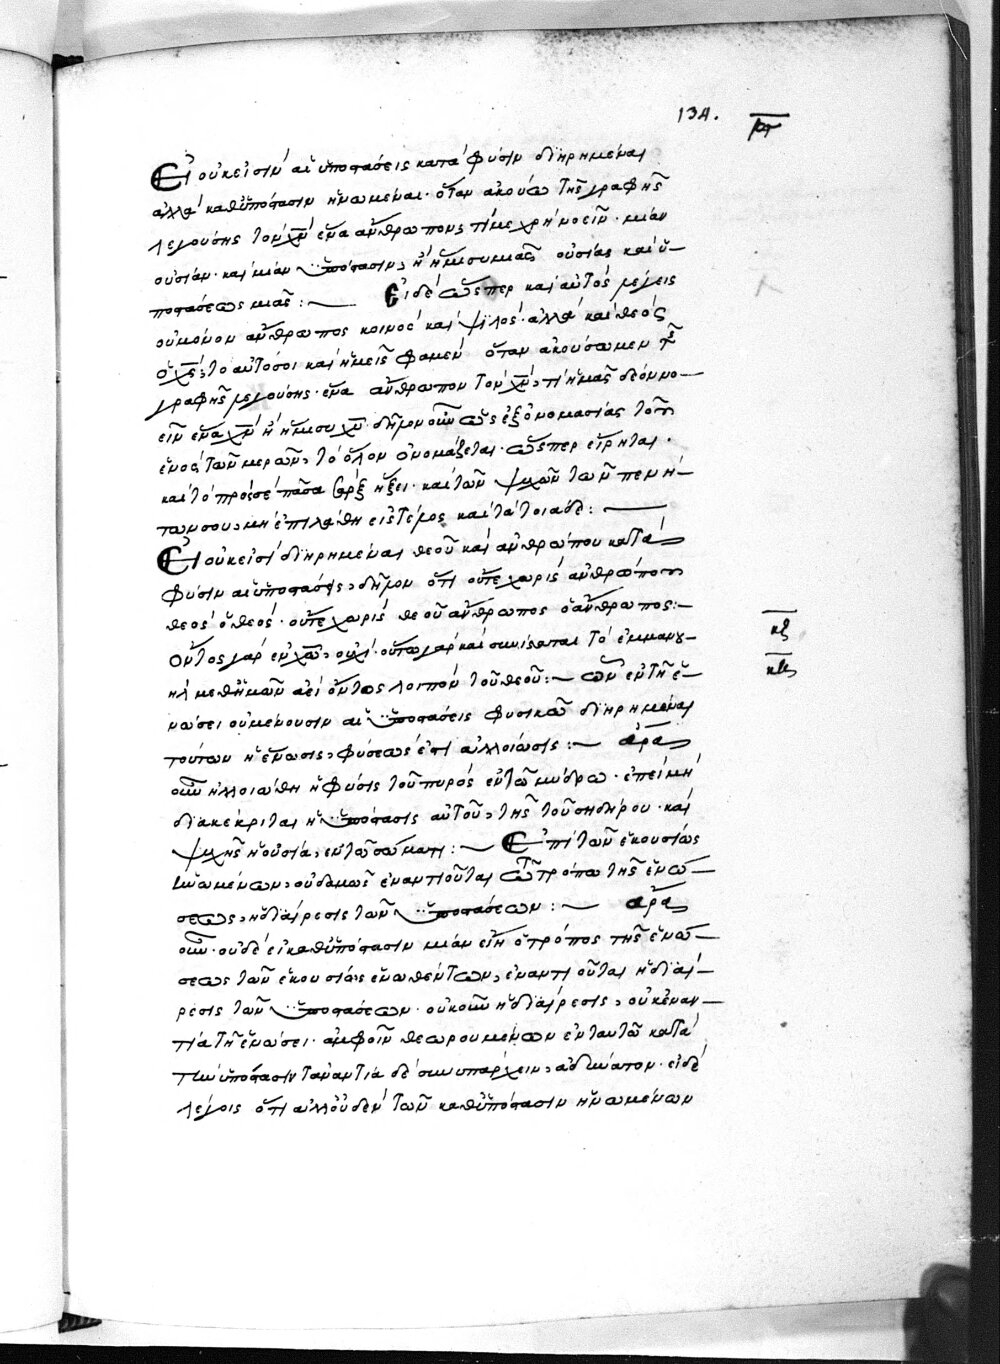 134.
Εἰ οὐκ εἰσὶν αἱ ὑποστάσεις κατὰ φύσιν διῃρημέναι
ἀλλὰ καθ' ὑπόστασιν ἡνωμέναι· ὅταν ἀκούσω τῆς γραφῆς
λεγούσης τὸν χν ἕνα ἄνθρωπον, τί με χρὴ νοεῖν· μίαν
οὐσίαν· καὶ μίαν ὑπόστασιν, ἢ ἥμισυ μιᾶς οὐσίας καὶ ὑ-
ποστάσεως μιᾶς: — Εἰ δὲ ὥσπερ καὶ αὐτὸς λέγεις
οὐ μόνον ἄνθρωπος κοινὸς καὶ ψιλὸς· ἀλλὰ καὶ θεὸς
ὁ χς, τὸ αὐτό σοι καὶ ἡμεῖς φαμὲν ὅταν ἀκούσωμεν τῆς
γραφῆς λεγούσης· ἕνα ἄνθρωπον τὸν χν, τί ἡμᾶς δέον νο-
εῖν ἕνα χν ἢ ἥμισυ χυ· δῆλον οὖν ὡς ἐξ ὀνομασίας τοῦ
ἑνὸς τῶν μερῶν, τὸ ὅλον ὀνομάζεται· ὥσπερ εἴρηται·
καὶ τὸ πρὸς σὲ πᾶσα σὰρξ ἥξει· καὶ τῶν ψυχῶν τῶν πενή-
των σου, μὴ ἐπιλάθῃ εἰς τέλος καὶ τὰ τοιαῦδε: —
Εἰ οὐκ εἰσὶ διῃρημέναι θεοῦ καὶ ἀνθρώπου κατὰ
φύσιν αἱ ὑποστάσεις, δῆλον ὅτι οὔτε χωρὶς ἀνθρώπου
θεὸς ὁ θεὸς· οὔτε χωρὶς θεοῦ ἄνθρωπος ὁ ἄνθρωπος: —
Οὕτως γὰρ ἐν χῶ, οὐχὶ· οὕτω γὰρ καὶ συνίσταται τὸ ἐμμανου-
ὴλ μεθ' ἡμῶν ἀεὶ ὄντος λοιπὸν τοῦ θεοῦ: — ὧν ἐν τῇ ἑ-
νώσει οὐ μένουσιν αἱ ὑποστάσεις φυσικῶς διῃρημέναι
τούτων ἡ ἕνωσις, φύσεως ἐστὶ ἀλλοίωσις: — ἆρα
οὖν ἠλλοιώθη ἡ φύσις τοῦ πυρὸς ἐν τῷ μύδρῳ· ἐπεὶ μὴ
διακέκριται ἡ ὑπόστασις αὐτοῦ, τῆς τοῦ σιδήρου· καὶ
ψυχῆς ἡ οὐσία, ἐν τῷ σώματι: — Ἐπὶ τῶν ἑκουσίως
ἑνωμένων, οὐδαμῶς ἐναντιοῦται τῷ τρόπῳ τῆς ἑνώ-
σεως, ἡ διαίρεσις τῶν ὑποστάσεων: — ἆρα
οὖν· οὐδὲ εἰ καθ' ὑπόστασιν μίαν εἴη ὁ τρόπος τῆς ἑνώ-
σεως τῶν ἑκουσίως ἑνωθέντων, ἐναντιοῦται ἡ διαί-
ρεσις τῶν ὑποστάσεων· οὐκοῦν ἡ διαίρεσις, οὐκ ἐναν-
τία τῇ ἑνώσει· ἀμφοῖν θεωρουμένων ἐν ταυτῷ κατὰ
τὴν ὑπόστασιν τἀναντία δὲ συνυπάρχειν, ἀδύνατον· εἰ δὲ
λέγοις ὅτι ἀλλ' οὐδὲν τῶν καθ' ὑπόστασιν ἡνωμένων
κζ
κη